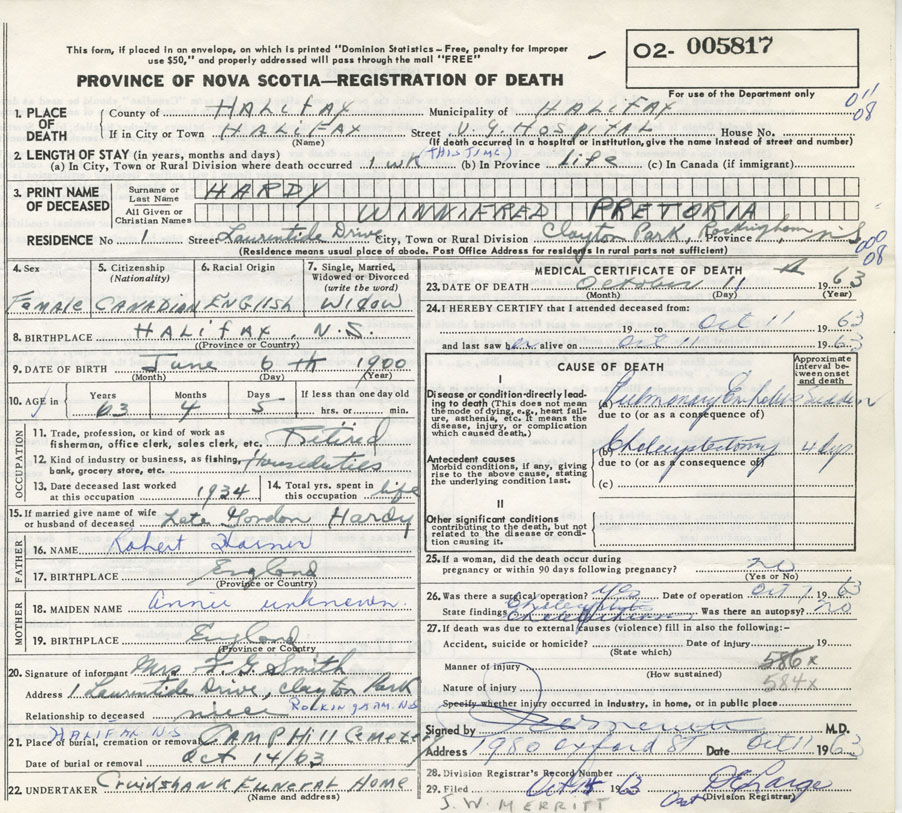 This form, if placed in an envelope, on which is printed "Dominion Statistics - Free, penalty for improper
use $50," and properly addressed will pass through the mail "FREE"
O2- 005817
PROVINCE OF NOVA SCOTIA—REGISTRATION OF DEATH
For use of the Department only
011
08
1. PLACE OF DEATH
County of HALIFAX Municipality of HALIFAX
If in City or Town HALIFAX Street V. G. HOSPITAL House No.
(Name) (If death occurred in a hospital or institution, give name instead of street and number)
2. LENGTH OF STAY (in years, months and days) (THIS TIME)
(a) In City, Town or Rural Division where death occurred 1 wk (b) In Province Life (c) In Canada (if immigrant)
3. PRINT NAME OF DECEASED
Surname or Last Name HARDY
All Given or Christian Names WINNIFRED PRETORIA
RESIDENCE No 1 Street Laurentide Drive City, Town or Rural Division Clayton Park, Rockingham Province N S
(Residence means usual place of abode. Post Office Address for residents in rural parts not sufficient)
000
08
4. Sex Female
5. Citizenship (Nationality) CANADIAN
6. Racial Origin ENGLISH
7. Single, Married, Widowed or Divorced (write the word) WIDOW
8. BIRTHPLACE HALIFAX, N.S.
(Province or Country)
9. DATE OF BIRTH June 6 th 1900
(Month) (Day) (Year)
10. AGE in Years 63 Months 4 Days 5 If less than one day old hrs. or min.
OCCUPATION
11. Trade, profession, or kind of work as fisherman, office clerk, sales clerk, etc. Retired
12. Kind of industry or business, as fishing, bank, grocery store, etc. Houseduties
13. Date deceased last worked at this occupation 1934
14. Total yrs. spent in this occupation life
15. If married give name of wife or husband of deceased Late Gordon Hardy
FATHER
16. NAME Robert
17. BIRTHPLACE England
(Province or Country)
MOTHER
18. MAIDEN NAME Annie unknown
19. BIRTHPLACE England
(Province or Country)
20. Signature of informant Mrs F. G. Smith
Address 1 Laurentide Drive, Clayton Park
ROCKINGHAM. NS
Relationship to deceased niece
HALIFAX N.S
21. Place of burial, cremation or removal CAMP Hill Cemetery
Date of burial or removal Oct 14/63
22. UNDERTAKER Cruikshank Funeral Home
(Name and address)
MEDICAL CERTIFICATE OF DEATH
23. DATE OF DEATH October 11 1963
(Month) (Day) (Year)
24. I HEREBY CERTIFY that I attended deceased from:
19 to Oct 11 1963
and last saw h alive on Oct 11 1963
CAUSE OF DEATH
Approximate interval between onset and death
I
Disease or condition-directly leading to death (This does not mean the mode of dying, e.g., heart failure, asthenia, etc. It means the disease, injury, or complication which caused death.)
(a) Pulmonary Sudden
due to (or as a consequence of)
Antecedent causes
Morbid conditions, if any, giving rise to the above cause, stating the underlying condition last.
(b) 4 days
due to (or as a consequence of)
(c)
II
Other significant conditions contributing to the death, but not related to the disease or condition causing it.
25. If a woman, did the death occur during pregnancy or within 90 days following pregnancy? no
(Yes or No)
26. Was there a surgical operation? yes Date of operation Oct 7 1963
State findings Was there an autopsy? no
27. If death was due to external causes (violence) fill in also the following:-
Accident, suicide or homicide? Date of injury 19
(State which)
Manner of injury 586x
(How sustained)
584x
Nature of injury
Specify whether injury occurred in Industry, in home, or in public place
Signed by M.D.
Address 1980 Oxford St Date Oct 11 1963
28. Division Registrar's Record Number
29. Filed 1963
(Division Registrar)
J. W. MERRITT